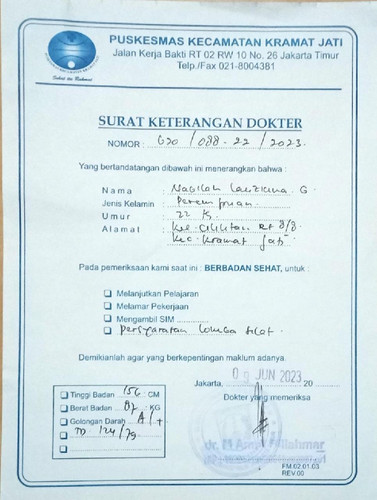 PUSKESMAS KECAMATAN KRAMAT JATI
Jalan Kerja Bakti RT 02 RW 10 No. 26 Jakarta Timur
Telp./Fax 021-8004381
Sehat itu Nikmat
SURAT KETERANGAN DOKTER
NOMOR : 620 / 088.22 / 2023.
Yang bertandatangan dibawah ini menerangkan bahwa :
Nama : Nabilah G.
Jenis Kelamin : Perempuan.
Umur : 22
Alamat : Kel. Cililitan RT 8/8
Kec. Kramat Jati
Pada pemeriksaan kami saat ini : BERBADAN SEHAT, untuk :
Melanjutkan Pelajaran
Melamar Pekerjaan
Mengambil SIM ..............
Persyaratan Lomba silat.
Demikianlah agar yang berkepentingan maklum adanya.
Jakarta, 09 JUN 2023 20
Dokter yang memeriksa
Tinggi Badan 156 CM
Berat Badan KG
Golongan Darah A/+
TD 124/79
FM 02.01.03
REV.00